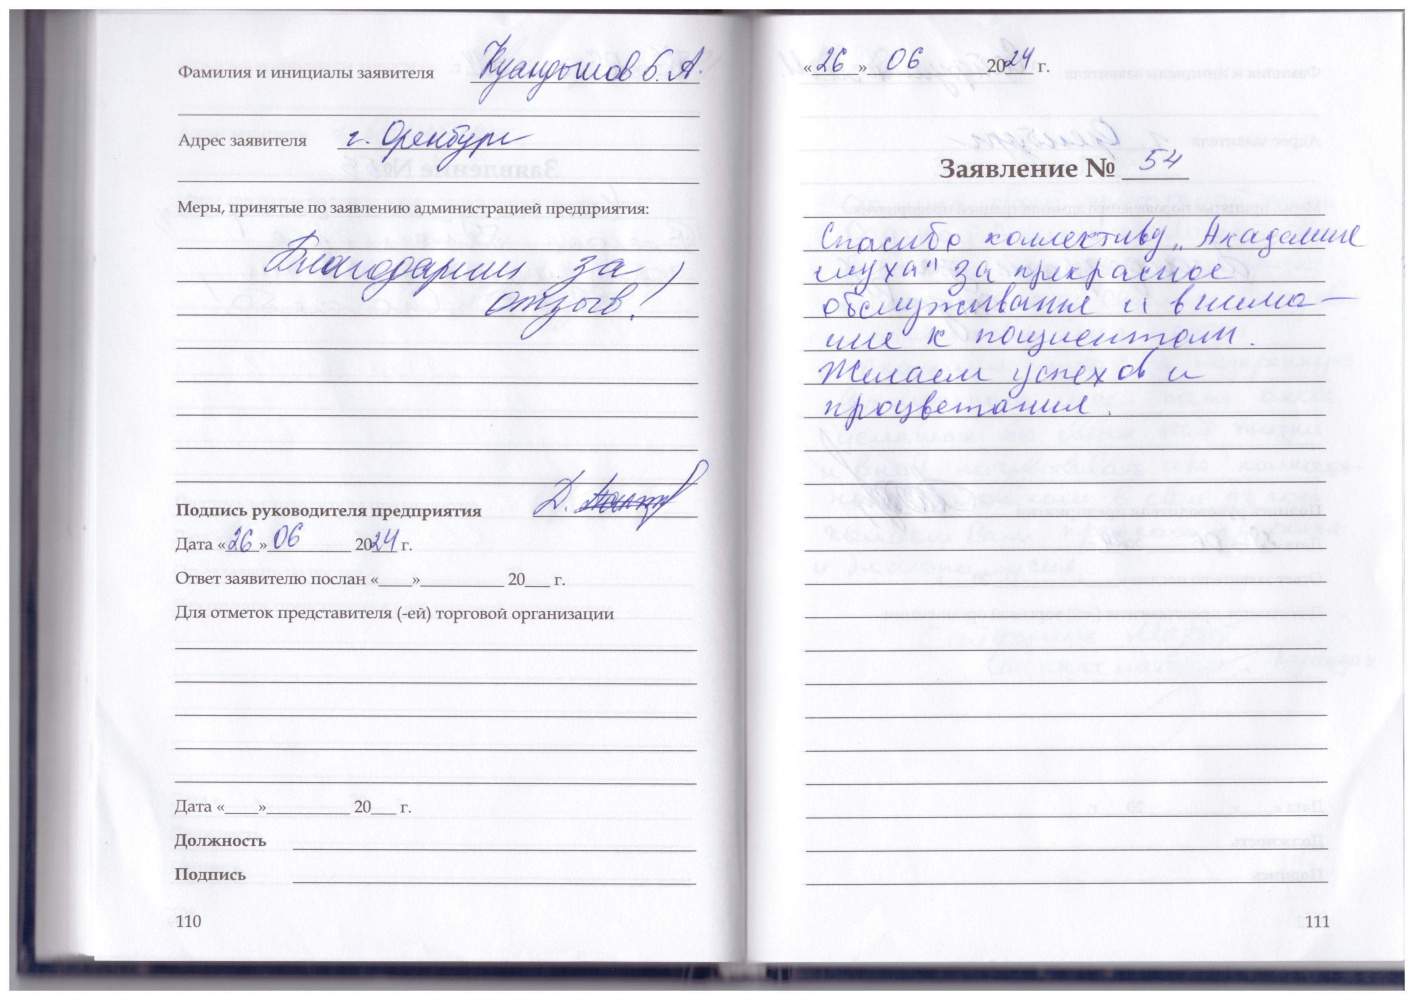 Фамилия и инициалы заявителя Куандышов Б. А.
Адрес заявителя г. Оренбург
Меры, принятые по заявлению администрацией предприятия:
Благодарим за
отзыв!
Подпись руководителя предприятия Д.
Дата «26» 06 2024 г.
Ответ заявителю послан «____»__________ 20___ г.
Для отметок представителя (-ей) торговой организации
Дата «____»__________ 20___ г.
Должность
Подпись
110
«26» 06 2024 г.
Заявление № 54
Спасибо коллективу „Академие
слуха" за прекрасное
обслуживание и внима-
ние к пациентам.
Желаем успехов и
процветания.
111